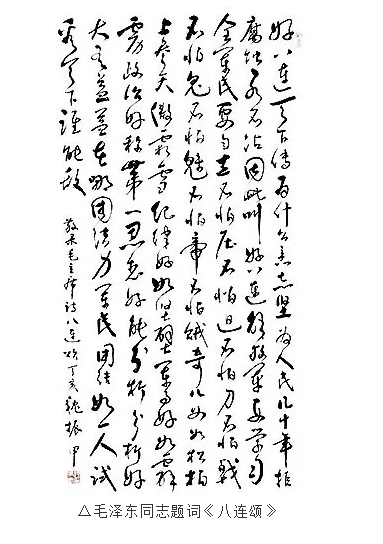 好八连天下传为什么意志坚为人民几十年拒
腐蚀永不沾因此叫好八连解放军要学习
全军民要自立不怕压不怕迫不怕刀不怕戟
不怕鬼不怕魅不怕帝不怕贼奇儿女如松柏
上参天傲霜雪纪律好如坚壁军事好如霹
雳政治好称第一思想好能分析分析好
大有益益在哪团结力军民团结如一人试
看天下谁能敌
敬录毛主席诗八连颂丁亥魏振甲
△毛泽东同志题词《八连颂》